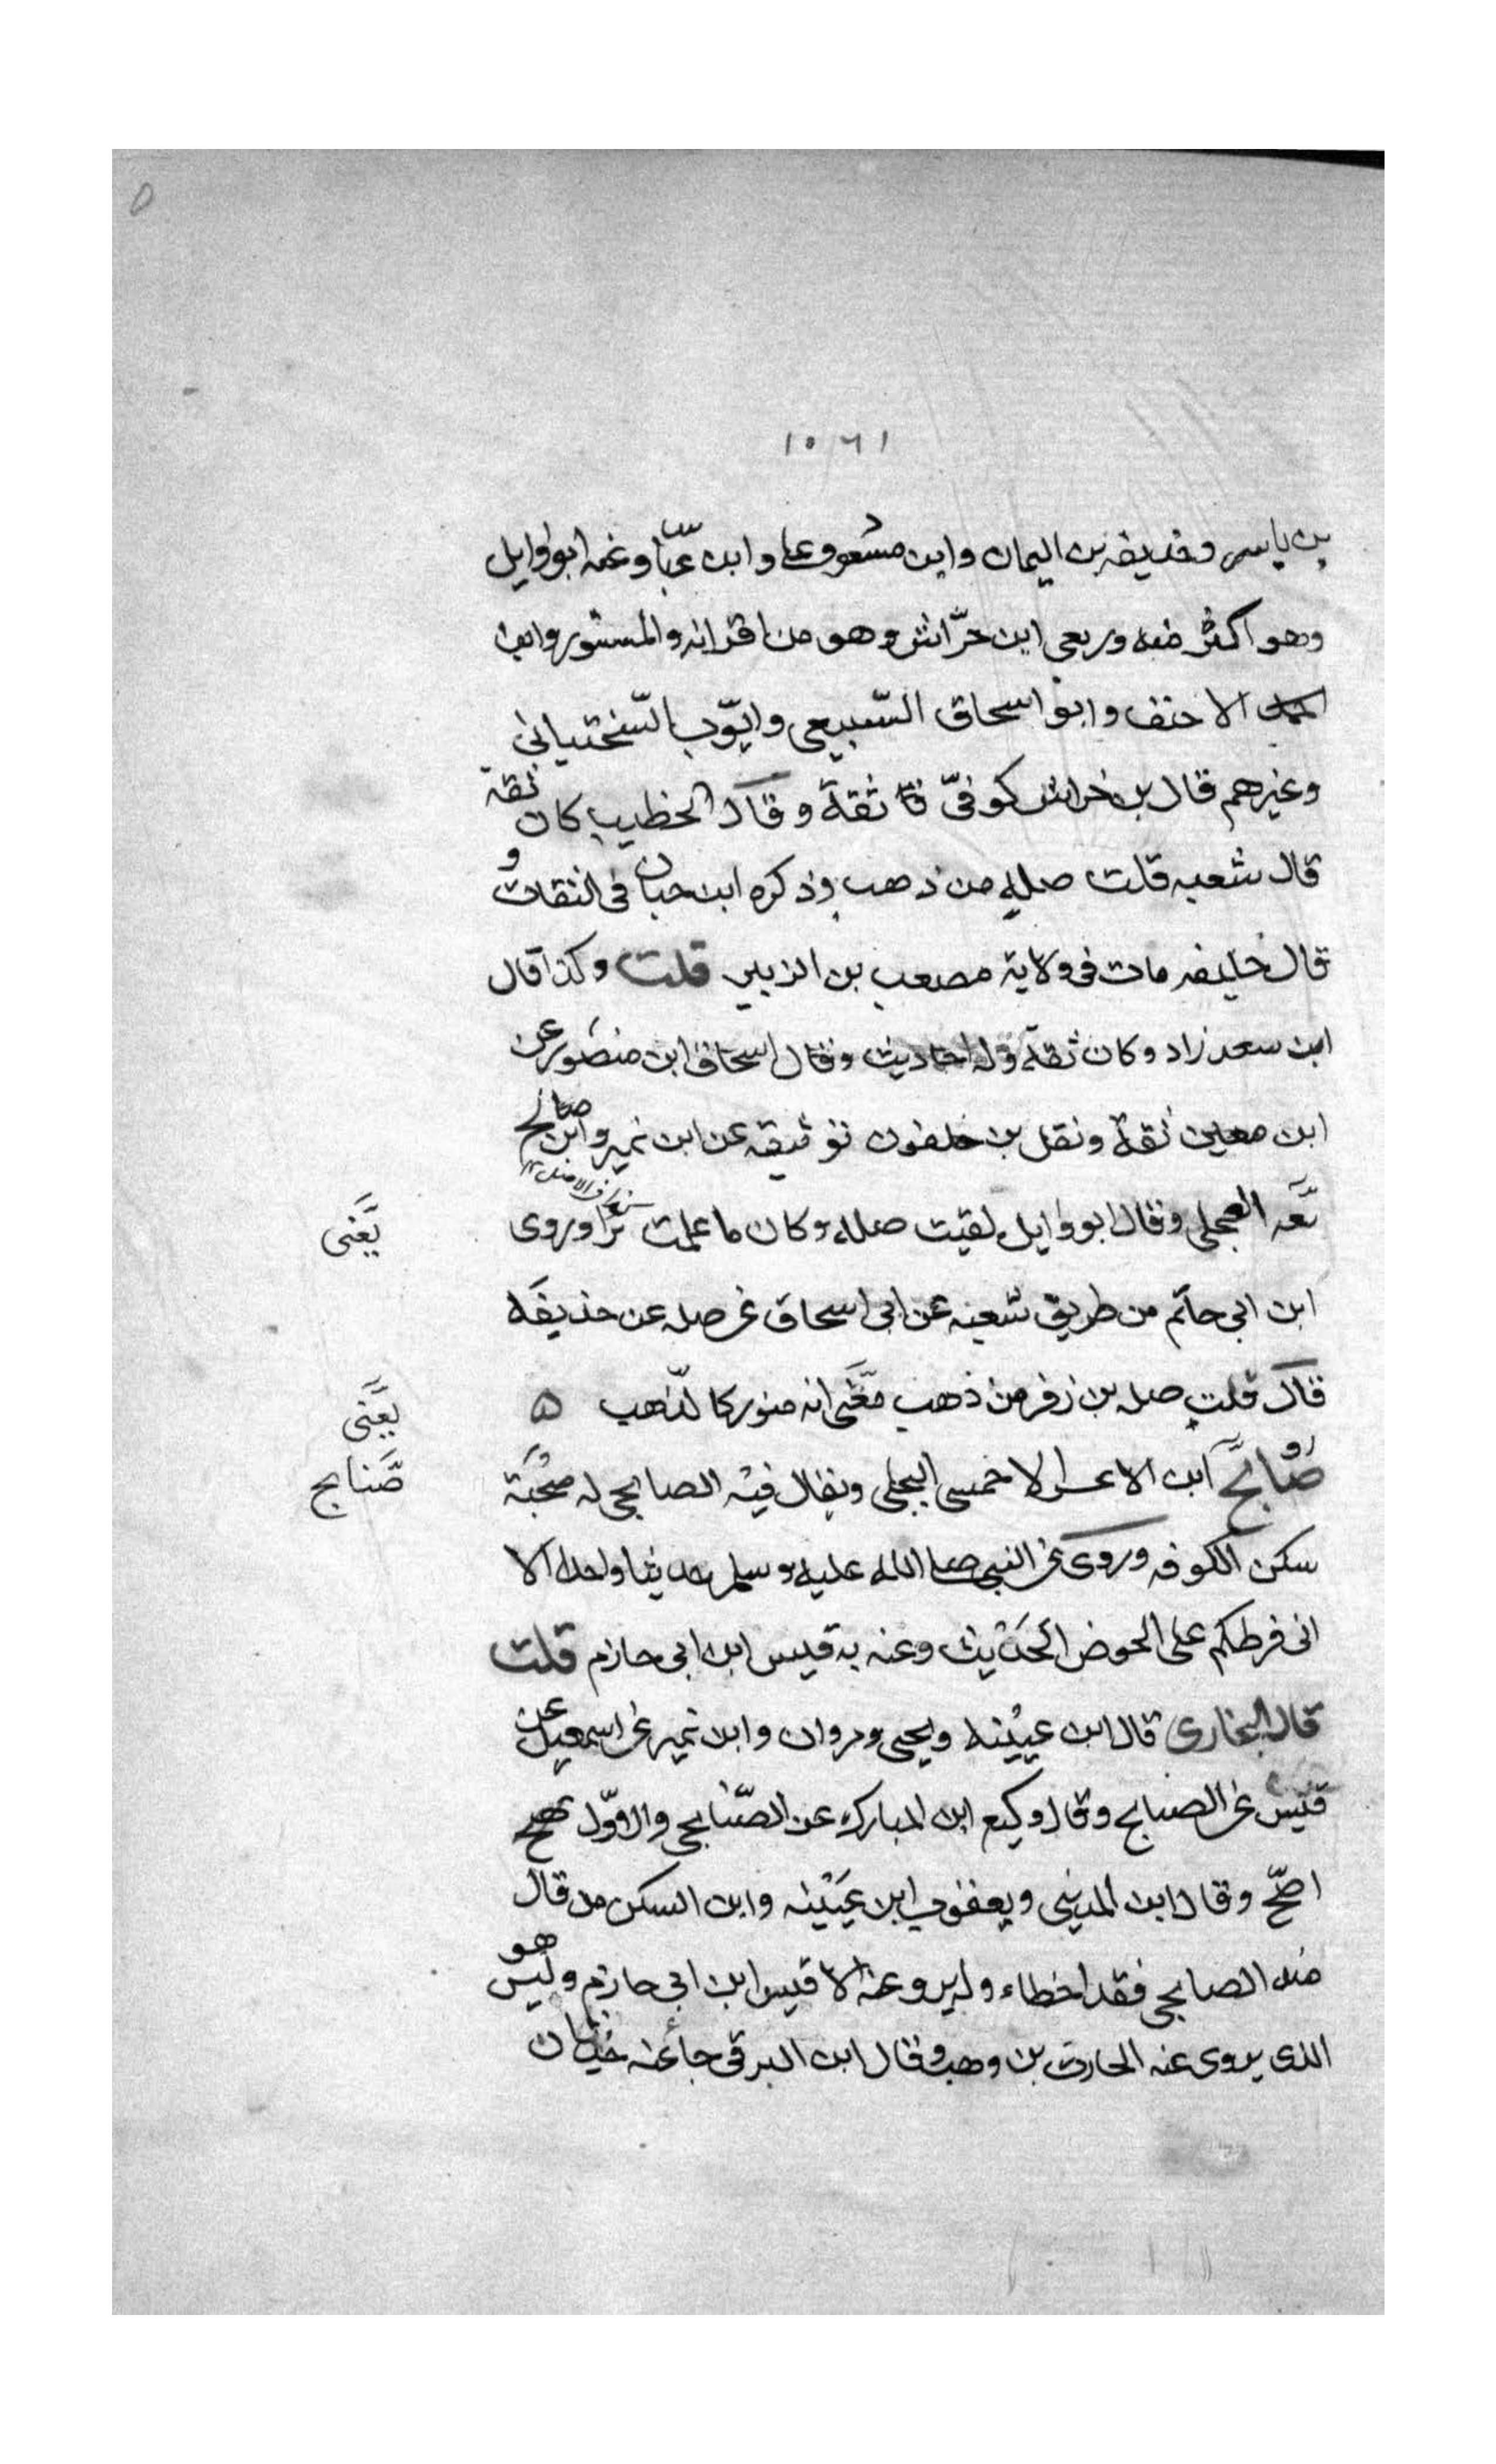 ١٠٦١
بن ياسر وحذيفه بن اليمان وابن مسعود وعلى وابن عباس وعنه ابو وايل
وهو اكثر منه وربعي ابن حرّاش وهو من اقرانه والمستورد ابن
الاحنف وابو اسحاق السّبيعي وايّوب السّختياني
وغيرهم قال بن خراش كوفيّ ثقة وقال الخطيب كان ثقة
قال شعبه قلت صله من ذهب وذكره ابن حبان في الثقات و
قال خليفه مات في ولاية مصعب بن الزبير قلت وكذا قال
ابن سعد زاد وكان ثقة وله احاديث وقال اسحاق ابن منصور عن
ابن معين ثقة ونقل بن خلفون توثيقه عن ابن نمير وابن صالح
العجلي وقال ابو وايل لقيت صله وكان ما علمت برّا وروى
يَعْنى
ابن ابي حاتم من طريق شعبه عن ابي اسحاق عن صله عن حذيفه
قال قلب صله بن زفر من ذهب يعني انه منور كالذهب ه
يَعْنى
صُنابح ابن الاعسر الاحمسي البجلي ويقال فيه الصنابحي له صحبة
صَنابح
سكن الكوفه وروى عن النبي صلى الله عليه وسلم حديثا واحدا الا
اني فرطكم على الحوض الحديث وعنه به قيس ابن ابي حازم قلت
قال البخاري قال ابن عيينه ويحيى ومروان وابن نمير عن اسمعيل عن
قيس عن الصنابح وقال وكيع ابن المبارك عن الصّنابحي والاوّل
اصحّ وقال ابن المديني ويعقوب ابن عيينه وابن السكن من قال
فيه الصنابحي فقد اخطاء ولم يرو عنه الا قيس ابن ابي حازم وليس هو
الذي يروى عنه الحارث بن وهب وقال ابن البرقي جاء عنه حديثان